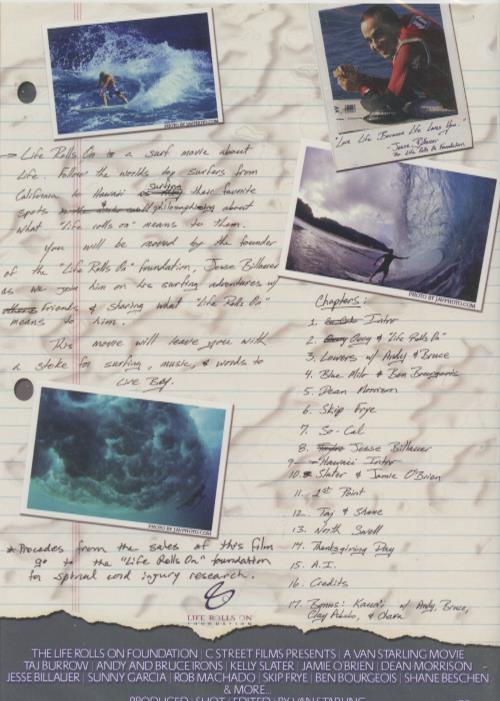 PHOTO BY JAYPHOTO.COM
"Live Life Because Life Loves You."
- Jesse Billauer
The Life Rolls On Foundation
PHOTO BY JAYPHOTO.COM
→ Life Rolls On is a surf movie about
Life. Follow the worlds top surfers from
California to Hawaii surfing their favorite
spots philosophising about
what "life rolls on" means to them.
You will be moved by the founder
of the "Life Rolls On" foundation, Jesse Billauer
as we join him on his surfing adventures w/
friends & sharing what "Life Rolls On"
means to him.
This movie will leave you with
a stoke for surfing, music, & words to
Live By.
Chapters:
1. Intro
2. Occy & "Life Rolls On"
3. Lowers w/ Andy & Bruce
4. Blue Mile & Ben Bourgeois
5. Dean Morrison
6. Skip Frye
7. So-Cal
8. Jesse Billauer
9. Hawaii Intro
10. Slater & Jamie O'Brien
11. 1st Point
12. Taj & Shane
13. North Swell
14. Thanksgiving Day
15. A.I.
16. Credits
17. Bonus: Kauai w/ Andy, Bruce,
PHOTO BY JAYPHOTO.COM
* Procedes from the sales of this film
go to the "Life Rolls On" foundation
for spinal cord injury research.
LIFE ROLLS ON
FOUNDATION
THE LIFE ROLLS ON FOUNDATION | C STREET FILMS PRESENTS | A VAN STARLING MOVIE
TAJ BURROW | ANDY AND BRUCE IRONS | KELLY SLATER | JAMIE O'BRIEN | DEAN MORRISON
JESSE BILLAUER | SUNNY GARCIA | ROB MACHADO | SKIP FRYE | BEN BOURGEOIS | SHANE BESCHEN
& MORE...
PRODUCED | SHOT | EDITED BY VAN STARLING